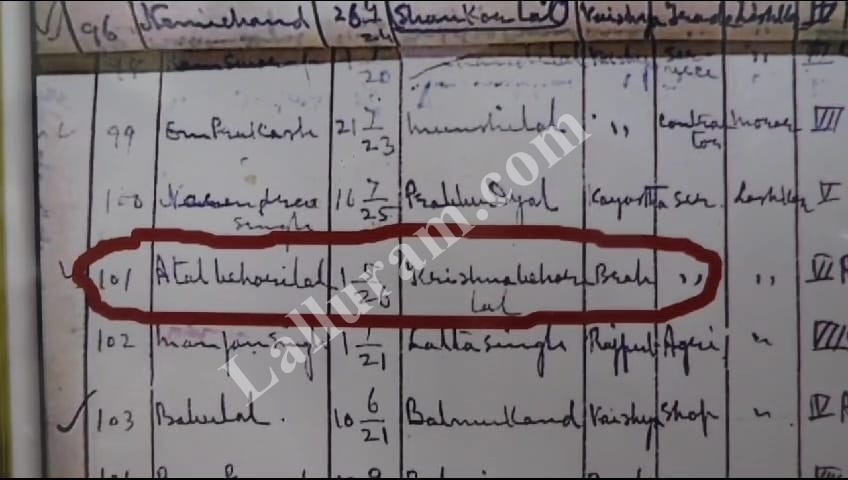 96 Nemichand 26 4/24 Shankar Lal Vaishya Trade Lashkar IV
98 20 ,, Ser- vice ,,
99 Om Prakash 21 7/23 Munshilal ,, contrac tor Morar VII
100 Narendra Singh 16 7/25 Prabhu Dyal Kayastha Ser. Lashkar V
101 Atal beharilal 1 /26 Krishna behari lal Brah ,, ,, VI
102 Singh 1 7/21 Latta Singh Rajput Agri ,, VIII
103 Babulal. 10 6/21 Balmukand Vaishya Shop ,, IV
Lalluram.com